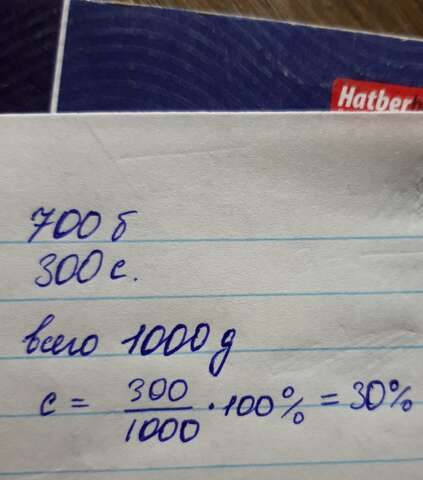 Hatber
700 б
300 с.
всего 1000 д
c = 300/1000 · 100% = 30%